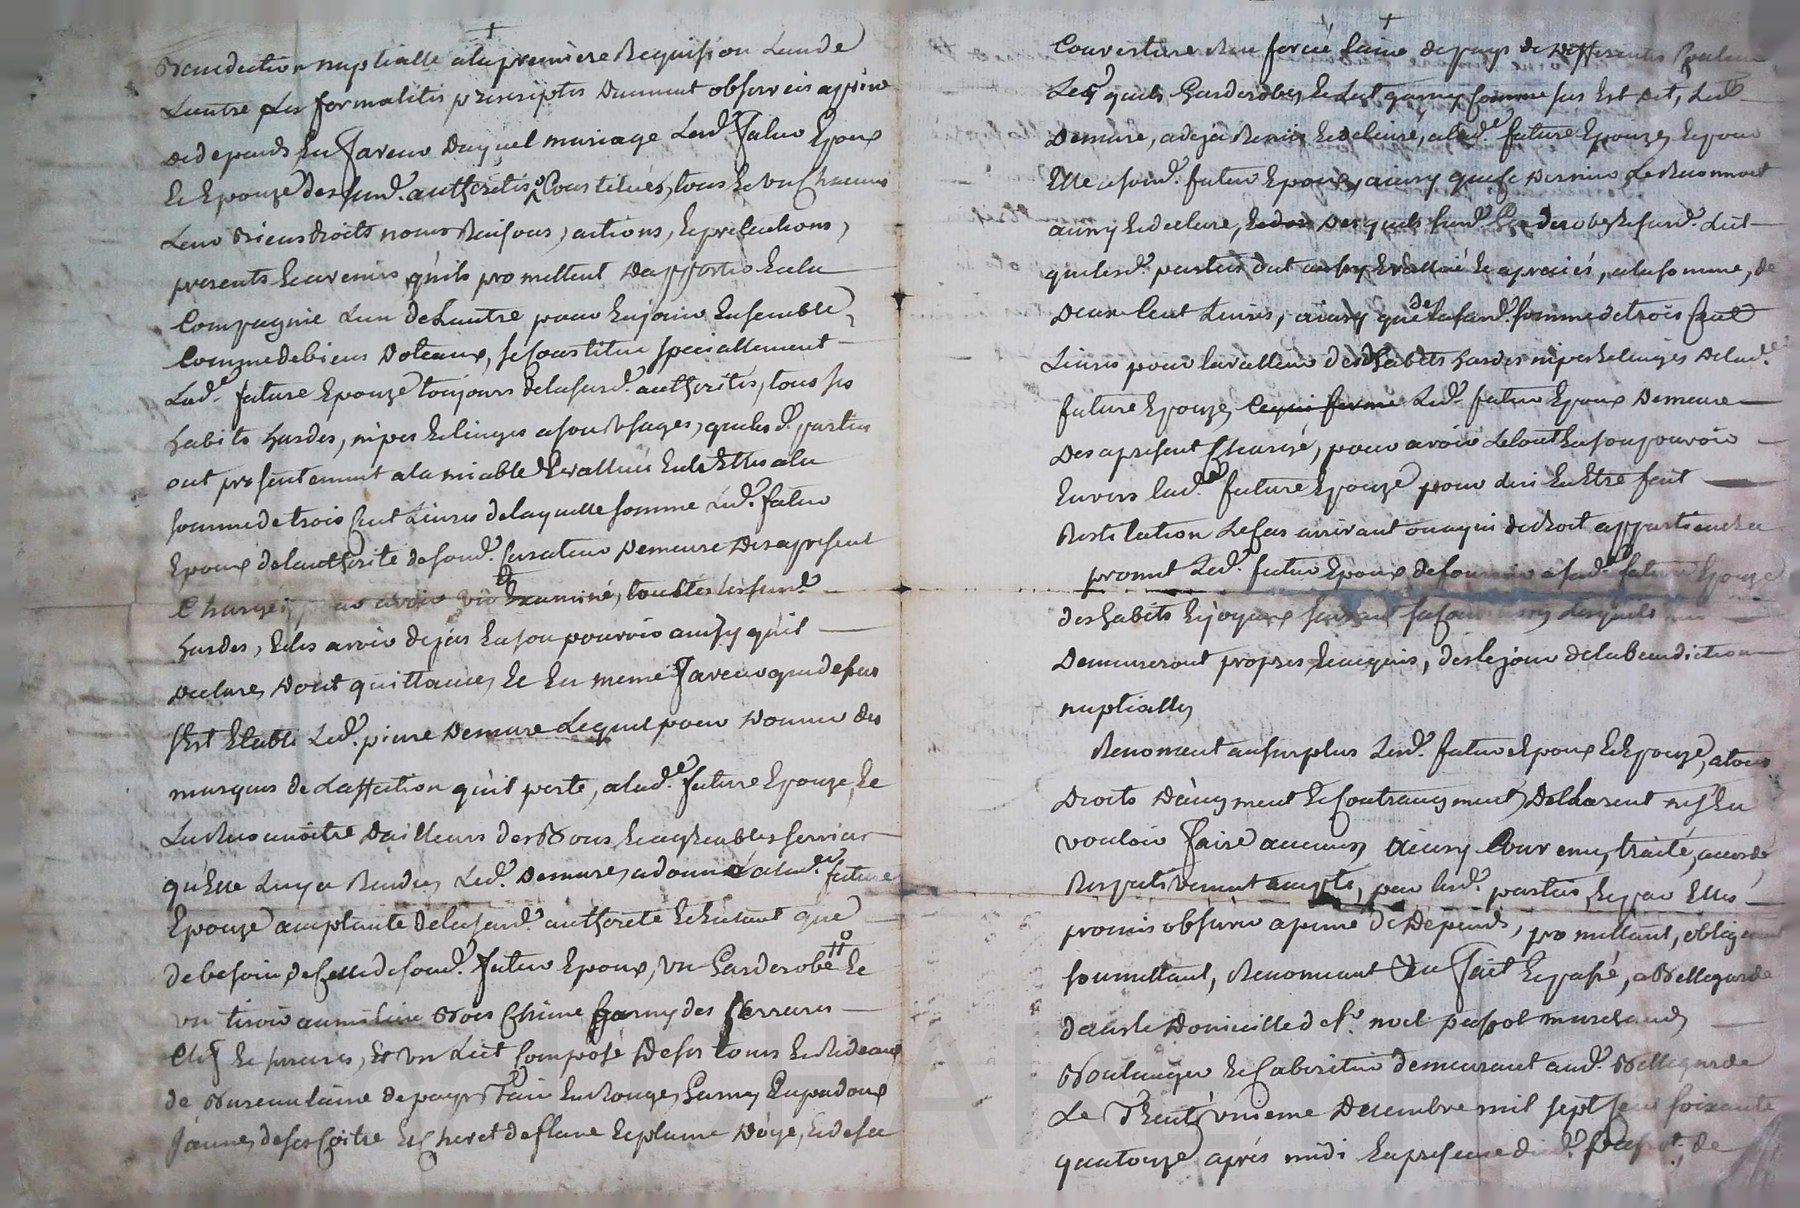 Benediction nuptialle a la premiere Requision Lun de
Lautre les formalités prescriptes duement observeés a peine
de depends En faveur duquel mariage Lesd. futur Epoux
Et Epouze des surd. authorités Constitués, tous Et un Chacuns
Leur Biens droits noms Raisons, actions, Et pretentions,
presents Et avenirs quils promettent dapporter En la
Compagnie Lun de Lautre pour En jouir Ensemble,
Comme de biens doteaux, se Constitue specialement
Lad.e future Epouze toujours de la surd.e authorités, tous ses
habits hardes, nipes Et linges a son usages, que lesd. parties
ont presentement a lamiable Evallués Entr Elles a la
somme de trois Cent Livres de laquelle somme Led. futur
Epoux de lauthorité de son d. Curateur demeure des apresent
Chargé pour avoir vu Examiné, touttes les surd.es
hardes, Et les avoir dejas En son pouvoir ainsy quil
declare, dont quittance, Et En meme faveur que dessus
sest Etabli Led. pierre demure Lequel pour donner des
marques de Laffection quil porte, a lad.e future Epouze, Et
La Reconnoitre dailleurs des Bons Et agreables services
quElle Luy a Rendus, Led. Demure, a donné a lad.e future
Epouze acceptante de la surd.e authorité Et Entant que
de besoin de Celle de son d. futur Epoux, un Garderobe Et
un tiroir au milieu Bois Chene Garny des ferrures
Clef Et serrures, Et un Lict Composé de ses tours Et Rideaux
de Bureau laine de pays tain En Rouge, Garny En padoux
jaune, de ses Coitre Et Chevet de flene Et plume doye, Et de sa
Couverture laine de pays de differentes Couleurs
Lesquels Garderobes Et Lict garny Comme sus Est dit, Led.
Demure, a deja Remis Et delivré, a lad.e future Epouze, Et pour
Elle a son d. futur Epoux, ainsy que Ce dernier Le Reconnoit
ainsy Et declare, desquels surd. Garderobes Et surd. Lict
que lesd. parties ont Evallué Et apreciés, a la somme, de
deux Cent Livres, ainsy que de la surd.e somme de trois Cent
Livres pour la valleur des habits hardes nipes Et linges de lad.e
future Epouze, Led. futur Epoux demeure
des apresent Chargé, pour avoir Le tout En son pouvoir
Envers lad.e future Epouze pour lui En Etre fait
Restitution Le Cas arrivant ou a qui de droit appartiendra
promet Led. futur Epoux de fournir a sad.e future Epouze
des habits Et joyaux suivant sa Lesquels
demeureront propres Et acquis, des le jour de la benediction
nuptialle,
Renoncent au surplus Lesd. futur Epoux Et Epouze, a tous
droits daugment Et Contraugment, declarent ny En
vouloir faire aucuns, ainsy Convenu, traité, accordé
Respectivement accepté, par lesd. parties, Et par Elles
promis observer a peine de depends, promettant, obligeant
soumettant, Renonceant &a fait Et passé, a Bellegarde
dans le domicille de sr. noel papot marchand
Boulanger Et Cabaretier demeurant aud. Bellegarde
Le Trente unieme decembre mil sept Cent soixante
quatorze après midi En presence dud. papot de